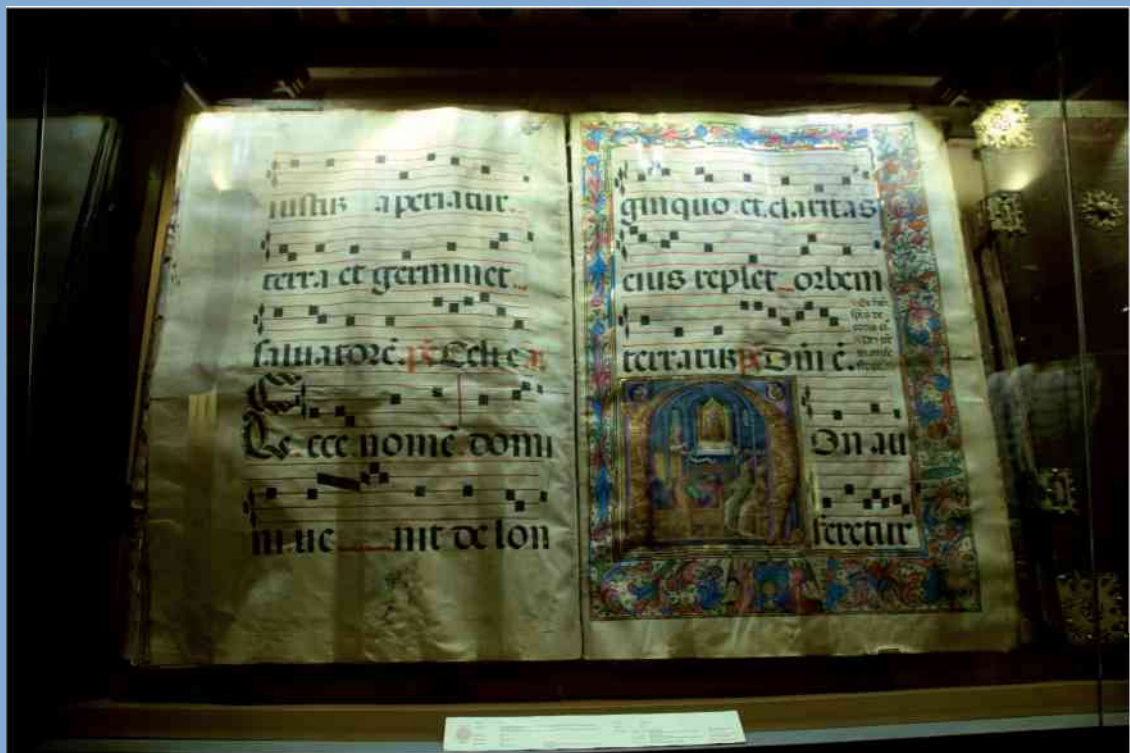 iustus aperiatur
terra et germinet
saluatorē. ps̄ Celi e
Ecce nomē domi
ni ue nit de lon
ginquo et claritas
eius replet orbem
terrarus ps̄ Dn̄i ē.
On au
feretur